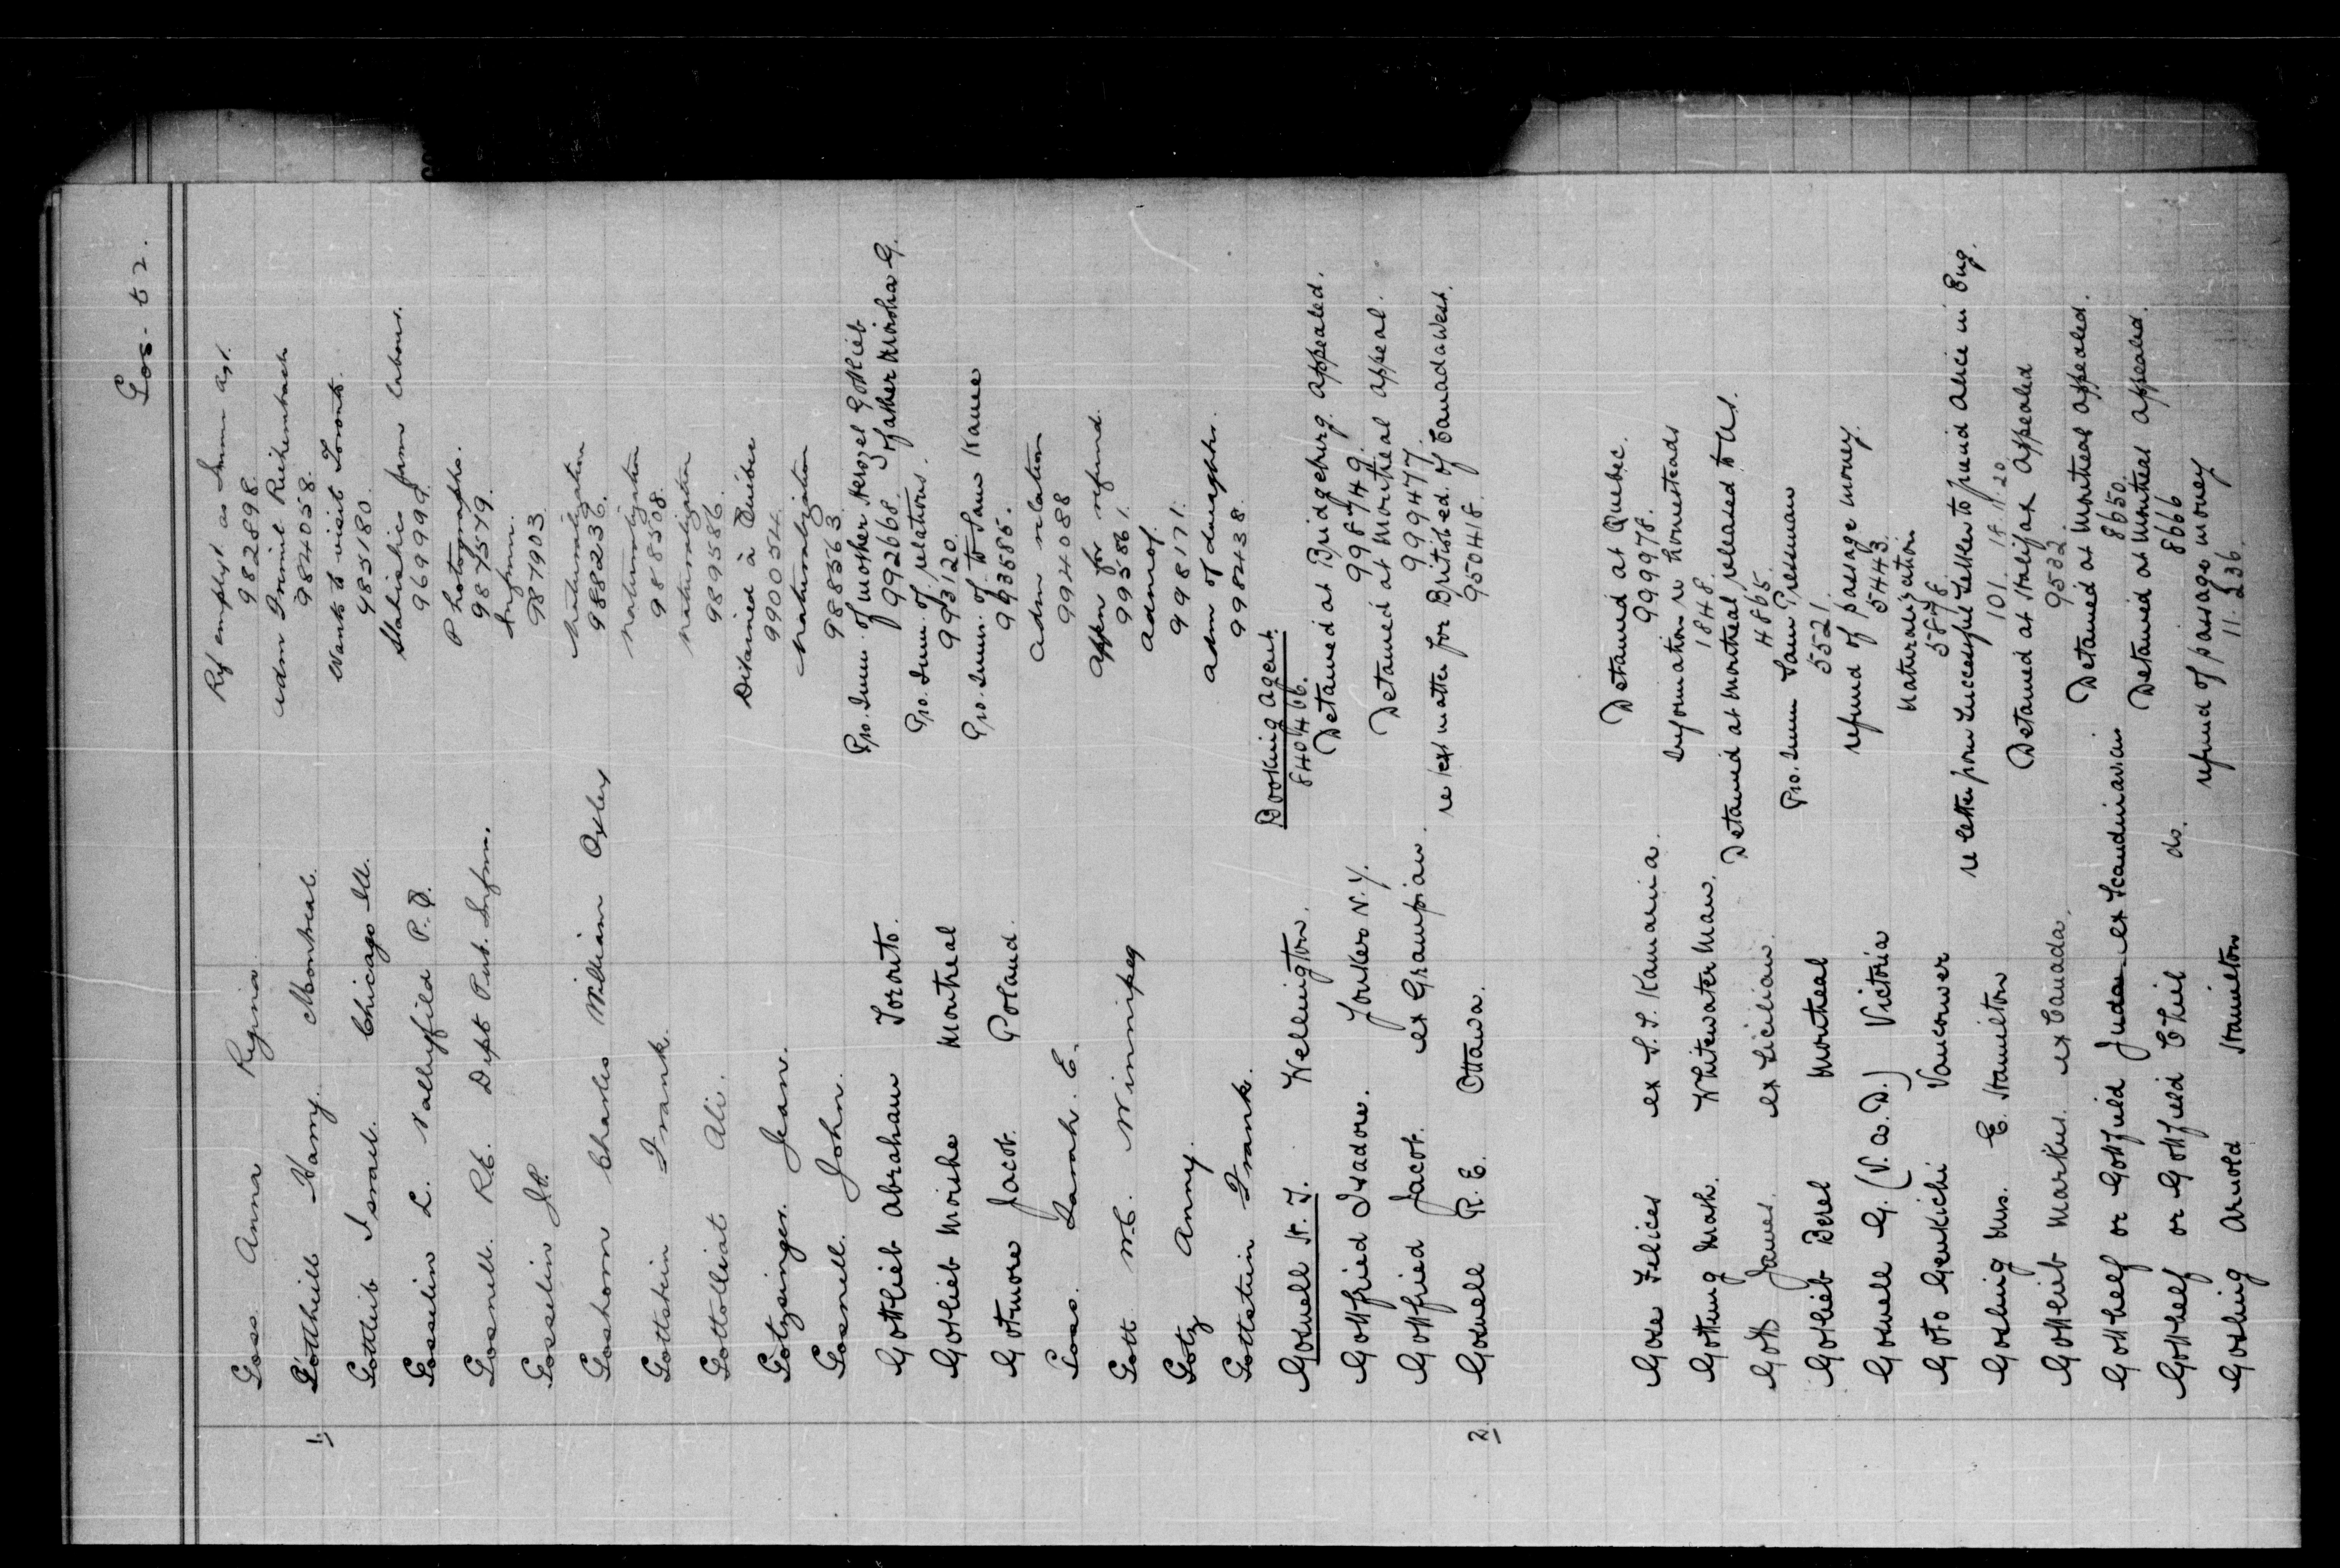 Gos - t 2.
Goss Anna Regina Ref emplyt as Imm agt.
982898.
1/ Gotthill Harry. Montreal. adm Immil
984058.
Gottlieb Israel. Chicago Ill. Wants to visit Toronto.
985180.
Gosselin L. Valleyfield P.Q. Statistics farm labour.
969999.
Gosnell. Rt. Dept Pub. Inform. Photographs.
987579.
Gosselin J.P. Inform.
987903
Goshorn Charles William Oxley Naturalization
988236.
Gottstein Frank. Naturalization
988508.
Gottolliat Ali. Naturalization
989586
Gotzsinger. Jean. Détained à Québec
990054.
Gosnell. John. Naturalization
988563.
Gottlieb Abraham Toronto. Pro. Imm. of mother Herszel Gottlieb
992668 of father Moisha G.
Gotlieb Moishe Montreal Pro. Imm. of relations.
993120.
Gotmore Jacob. Poland Pro. Imm. of to Sam Kane
993585.
Goss. Sarah. E. Adm relation
994088
Gott W.C. Winnipeg Appn for refund.
995861.
Gotz Anny. Adm of
998171.
Gottstein Frank. Adm of daughter.
999438.
Goswell H. T. Wellington. Booking Agent.
840466.
Gottfried Isadore. Yonkers N.Y. Detained at Bridgeburg. appealed.
998749.
Gottfried Jacob. ex Grampian. Detained at Montreal appeal.
999477.
2/ Goswell R. E. Ottawa. re ex matter for British ed. of Canada West.
950418.
Felices ex S.S. Kamarina. Detained at Quebec.
999978.
Gotting Mark. Whitewater Man. Information re homesteads
1848.
Gott James. ex Sicilian. Detained at Montreal released to US.
4865.
Gotlieb Berel Montreal Pro. Imm Sam Pressman
5521.
Goswell G. (V.A.D.) Victoria refund of passage money.
5443.
Goto Genkichi Vancouver Naturalization
5878.
Gosling Mrs. E. Hamilton re letter from Successful Settler to friend Alice in Eng.
101. 18.11.20
Gottlieb Markus. ex Canada. Detained at Halifax appealed
9532
Gotthelf or Gottfield Juda ex Scandinavian Detained at Montreal appealed.
8650.
Gotthelf or Gottfield Chil do. Detained at Montreal appealed.
8666
Gosling Arnold Hamilton refund of passage money
11.236.